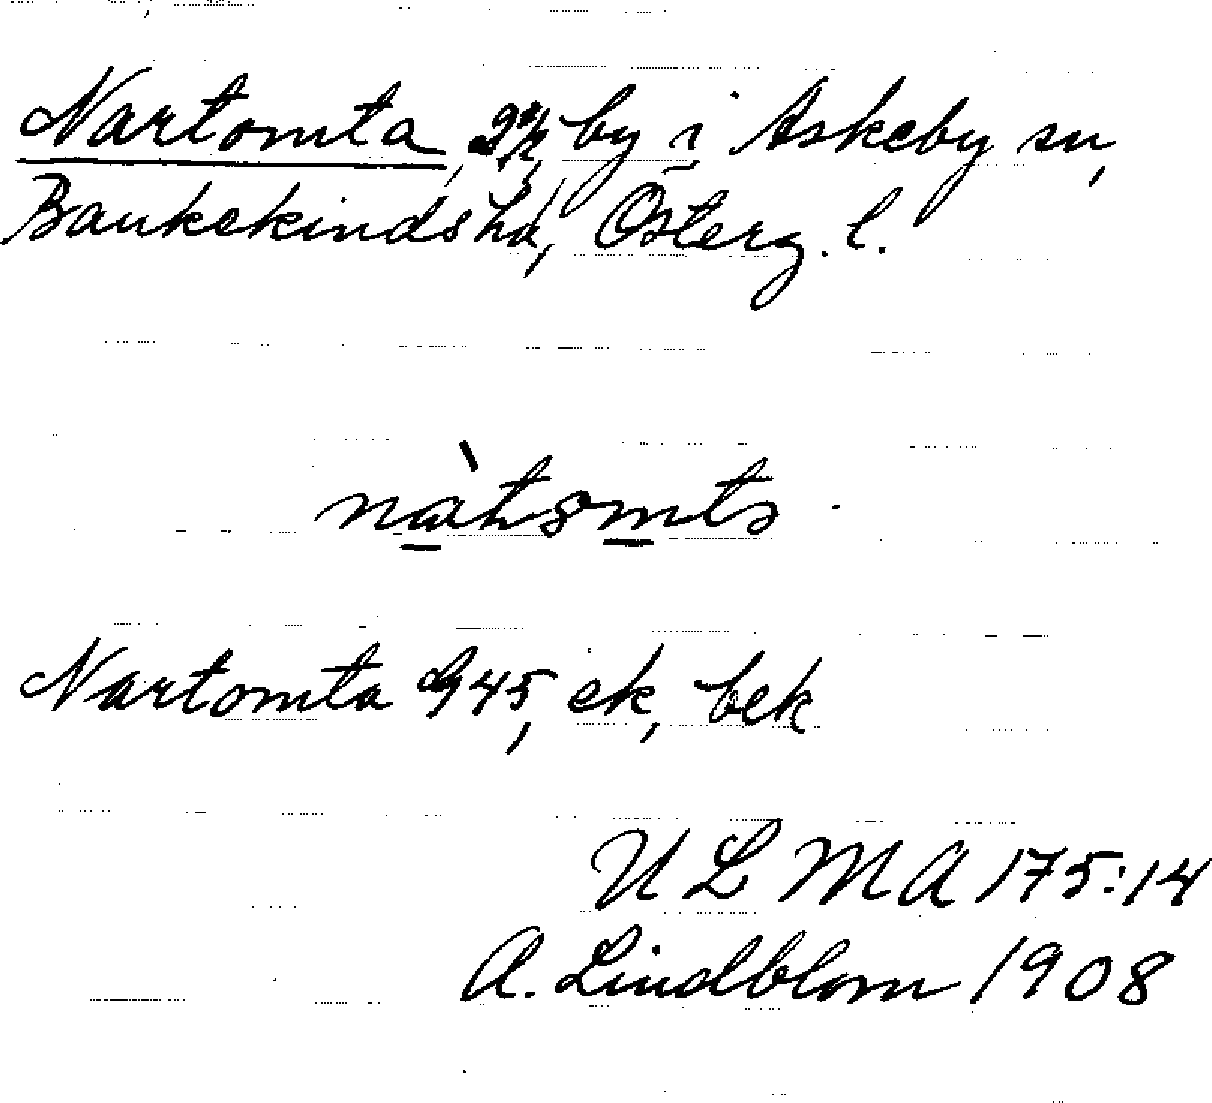 Nartomta, by i Askeby sn,
Bankekindshd, Österg. l.
nàtsmts
Nartomta G45, ek, bek
ULMA 175:14
A. Lindblom 1908